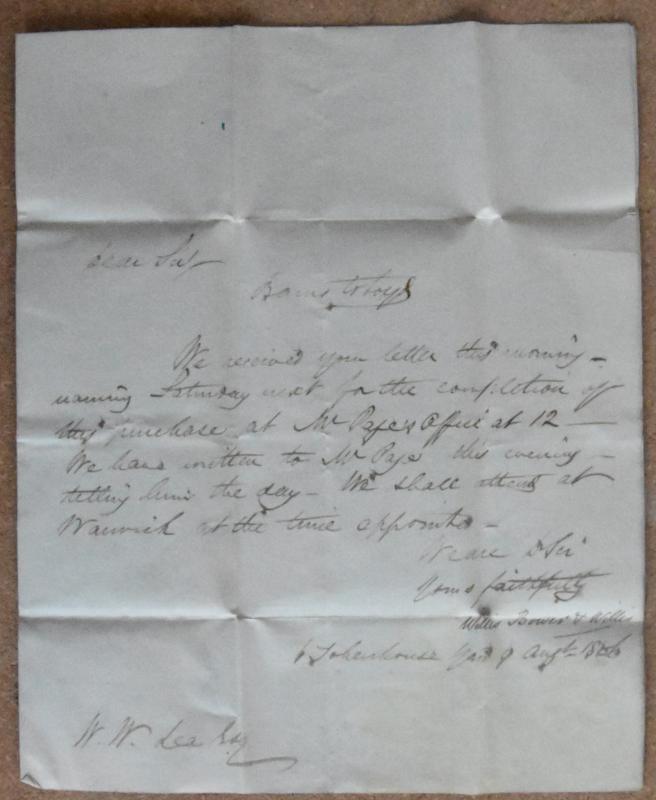 Dear Sir
We received your letter this morning –
naming Saturday next for the completion of
this purchase at Mr Page's Office at 12 —
We have written to Mr Page this evening –
telling him the day – We shall attend at
Warwick at the time appointed –
We are D Sir
Yours faithfully
Willis Bower & Willis
6 Tokenhouse Yard 9 Augt
W. W. Lea Esq